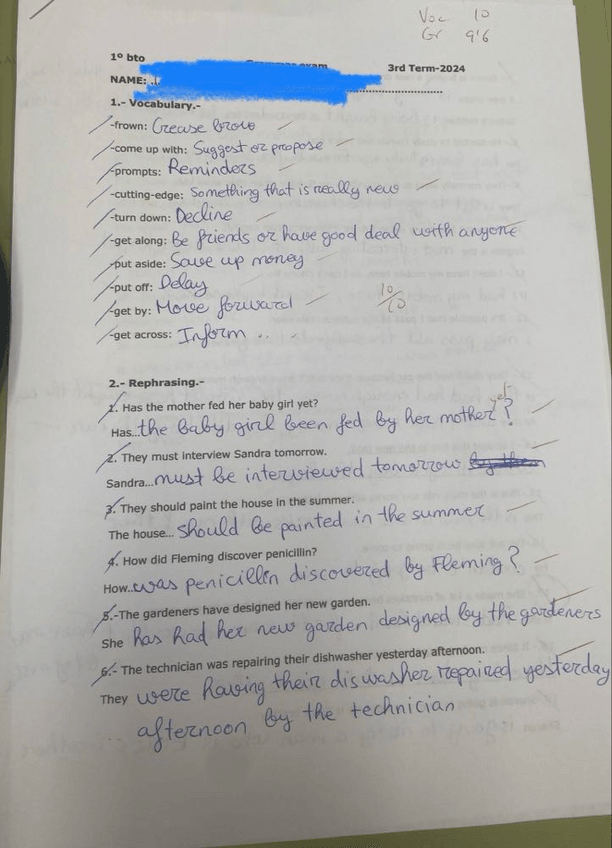 Voc 10
Gr 9'6
1º bto
3rd Term-2024
NAME:
1.- Vocabulary.-
-frown: Crease brow
-come up with: Suggest or propose
-prompts: Reminders
-cutting-edge: Something that is really new
-turn down: Decline
-get along: Be friends or have good deal with anyone
-put aside: Save up money
-put off: Delay
10/10
-get by: Move forward
-get across: Inform
2.- Rephrasing.-
1. Has the mother fed her baby girl yet?
Has...the baby girl been fed by her mother yet?
2. They must interview Sandra tomorrow.
Sandra...must be interviewed tomorrow
3. They should paint the house in the summer.
The house... should be painted in the summer
4. How did Fleming discover penicillin?
How..was penicillin discovered by Fleming?
5.-The gardeners have designed her new garden.
She has had her new garden designed by the gardeners
6.- The technician was repairing their dishwasher yesterday afternoon.
They were having their diswasher repaired yesterday
afternoon by the technician